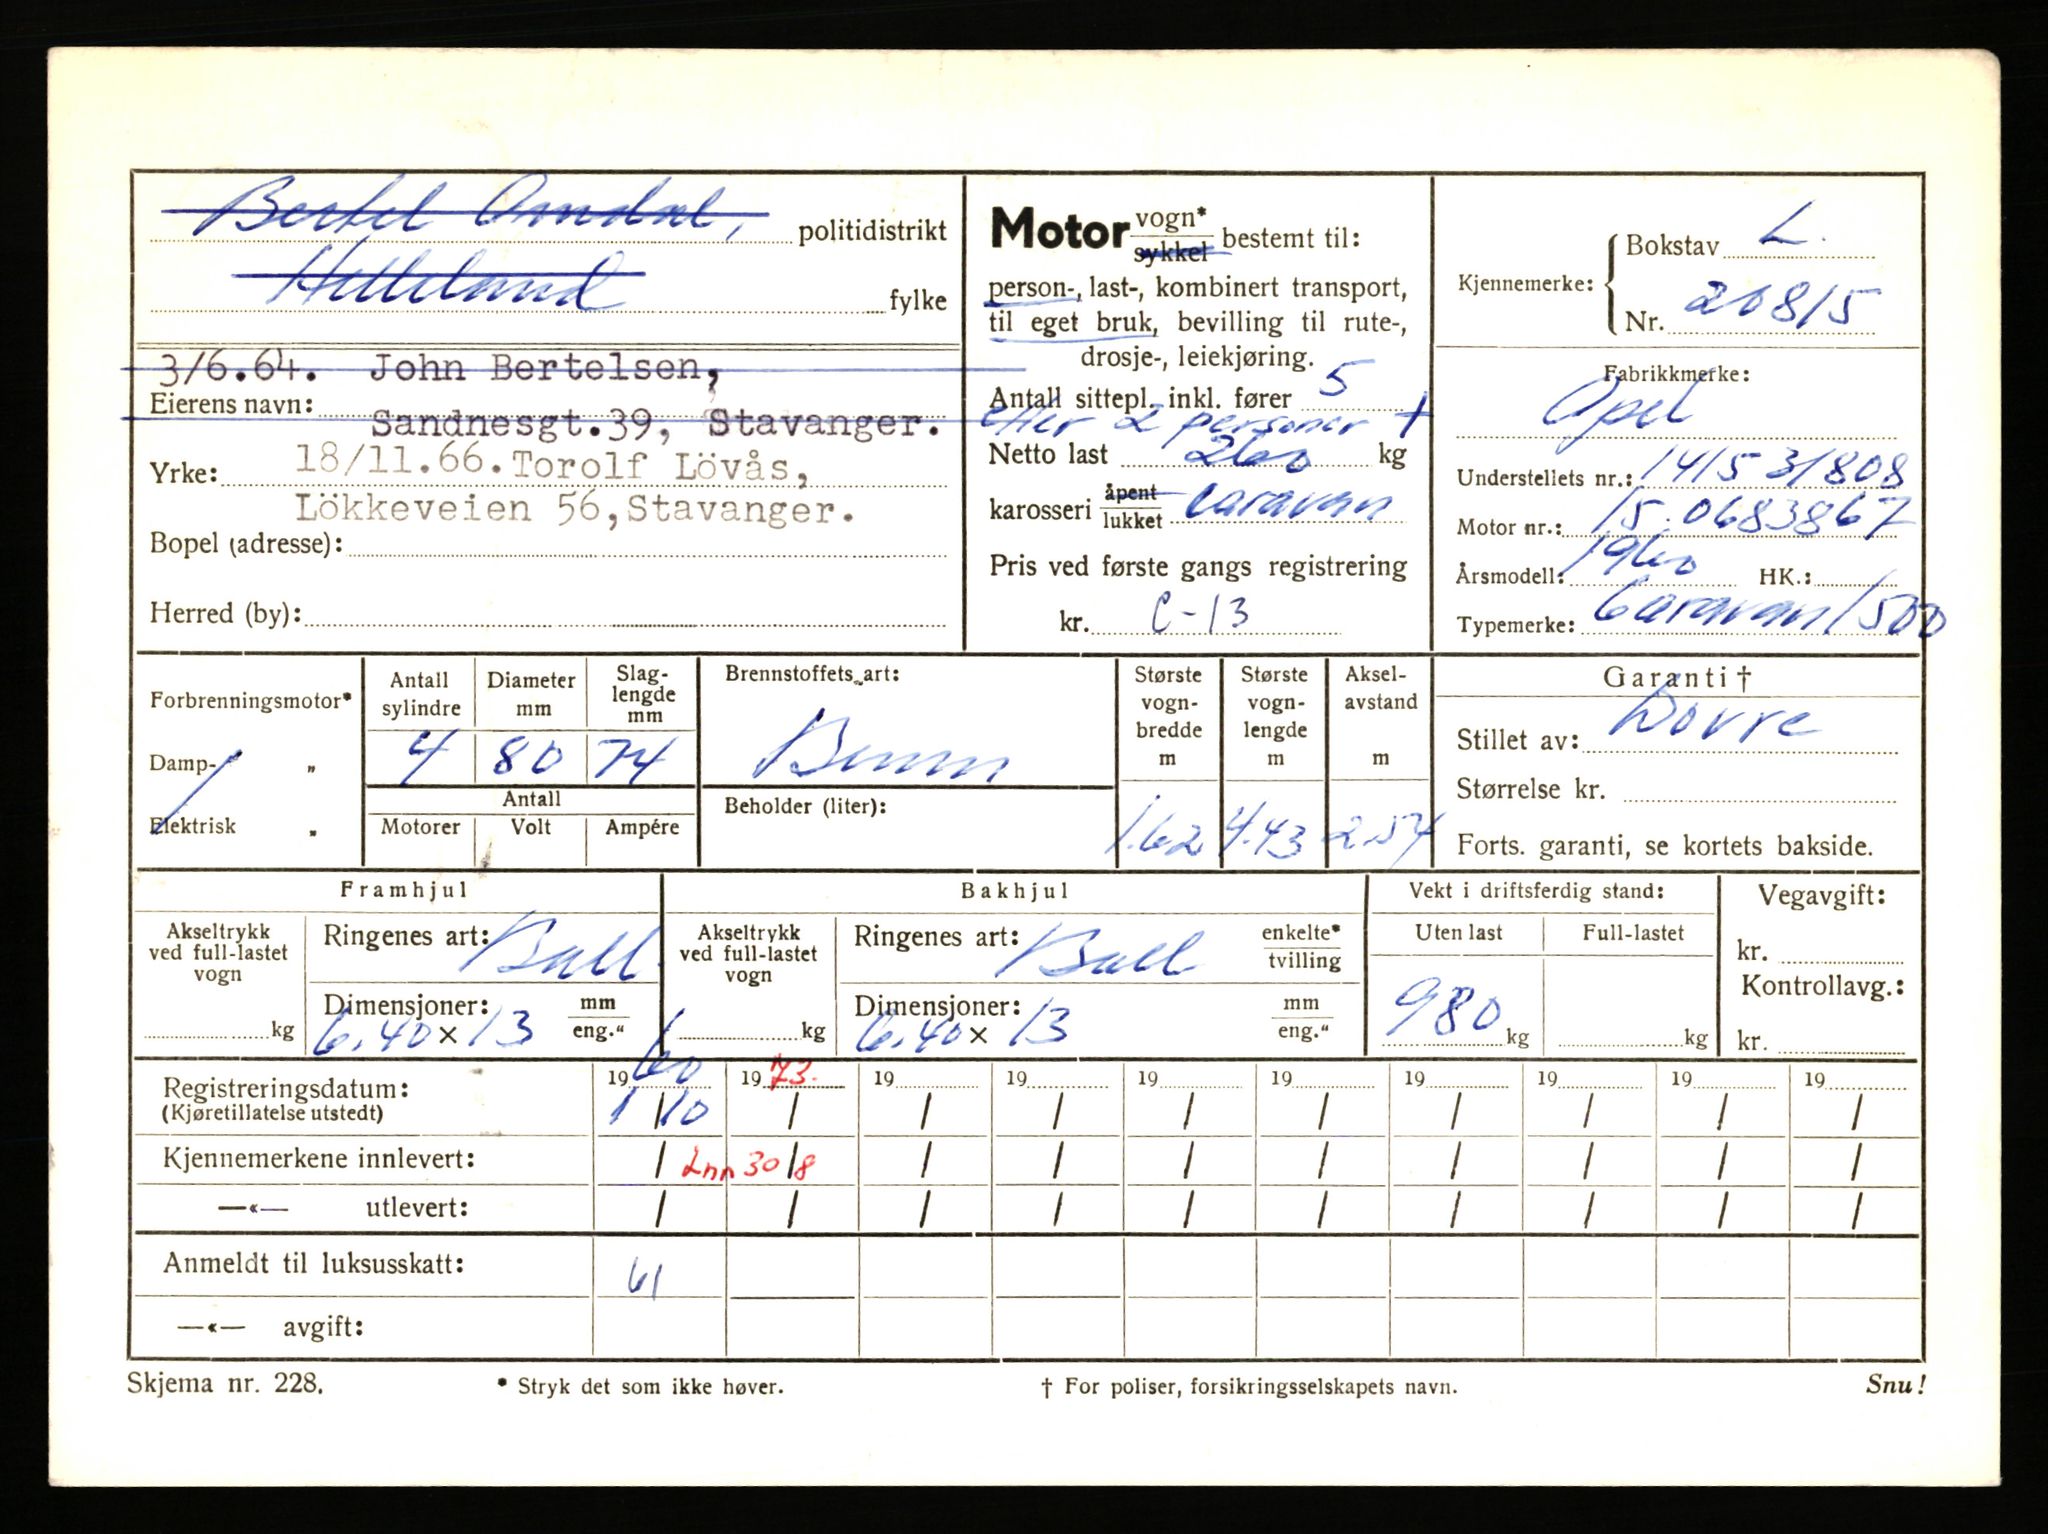 Bertel Omdal, politidistrikt
Helleland fylke
3/6.64. John Bertelsen,
Eierens navn:
Sandnesgt.39, Stavanger.
18/11.66. Torolf Lövås,
Yrke:
Lökkeveien 56, Stavanger.
Bopel (adresse):
Herred (by):
Motor vogn*
sykkel bestemt til:
person-, last-, kombinert transport,
til eget bruk, bevilling til rute-,
drosje-, leiekjøring.
Antall sittepl. inkl. fører 5
etter 2 personer +
Netto last 260 kg
karosseri åpent
lukket Caravan
Pris ved første gangs registrering
kr. C-13
Kjennemerke: Bokstav L.
Nr. 20815
Fabrikkmerke:
Opel
Understellets nr.: 141531808
Motor nr.: 15.0683867
Årsmodell: 1960 HK.:
Typemerke: Caravan 1500
Forbrenningsmotor*
Damp- „
Elektrisk „
Antall sylindre Diameter mm Slag-lengde mm
4 80 74
Antall
Motorer Volt Ampére
Brennstoffets art:
Bensin
Beholder (liter):
Største vogn-bredde m Største vogn-lengde m Aksel-avstand m
1.62 4.43 2.54
Garanti †
Stillet av: Dovre
Størrelse kr.
Forts. garanti, se kortets bakside.
Framhjul
Akseltrykk
ved full-lastet
vogn
kg
Ringenes art: Ball
Dimensjoner: mm
6.40 × 13 eng."
Bakhjul
Akseltrykk
ved full-lastet
vogn
kg
Ringenes art: Ball enkelte*
tvilling
Dimensjoner: mm
6.40 × 13 eng."
Vekt i driftsferdig stand:
Uten last Full-lastet
980 kg kg
Vegavgift:
kr.
Kontrollavg.:
kr.
Registreringsdatum: 1960 1973. 19 19 19 19 19 19 19 19
(Kjøretillatelse utstedt) 1/10 / / / / / / / / /
Kjennemerkene innlevert: / Inn 30/8 / / / / / / / /
—«— utlevert: / / / / / / / / / /
Anmeldt til luksusskatt: 61
—«— avgift:
Skjema nr. 228. * Stryk det som ikke høver. † For poliser, forsikringsselskapets navn. Snu!